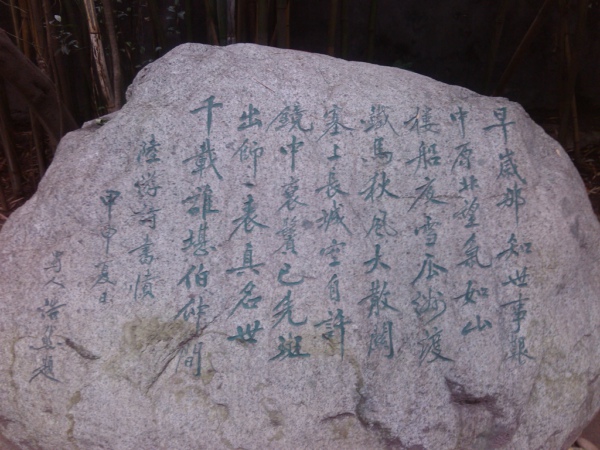 早歲那知世事艱
中原北望氣如山
樓船夜雪瓜洲渡
鐵馬秋風大散關
塞上長城空自許
鏡中衰鬢已先斑
出師一表真名世
千載誰堪伯仲間
陸游詩書憤
甲申夏日
浩然題